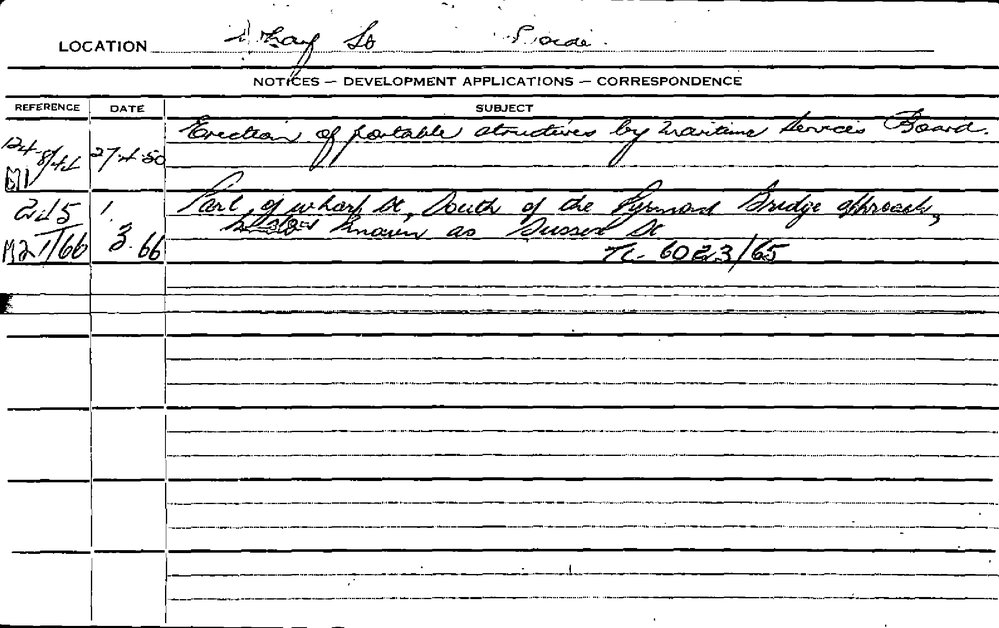 LOCATION Wharf St
NOTICES – DEVELOPMENT APPLICATIONS – CORRESPONDENCE
REFERENCE DATE SUBJECT
Erection of portable structures by Maritime Services Board.
27.4.50
2415 1. Part of Wharf St, South of the Pyrmont Bridge approach,
M21/66 3.66 known as Sussex St
TC- 6023/65